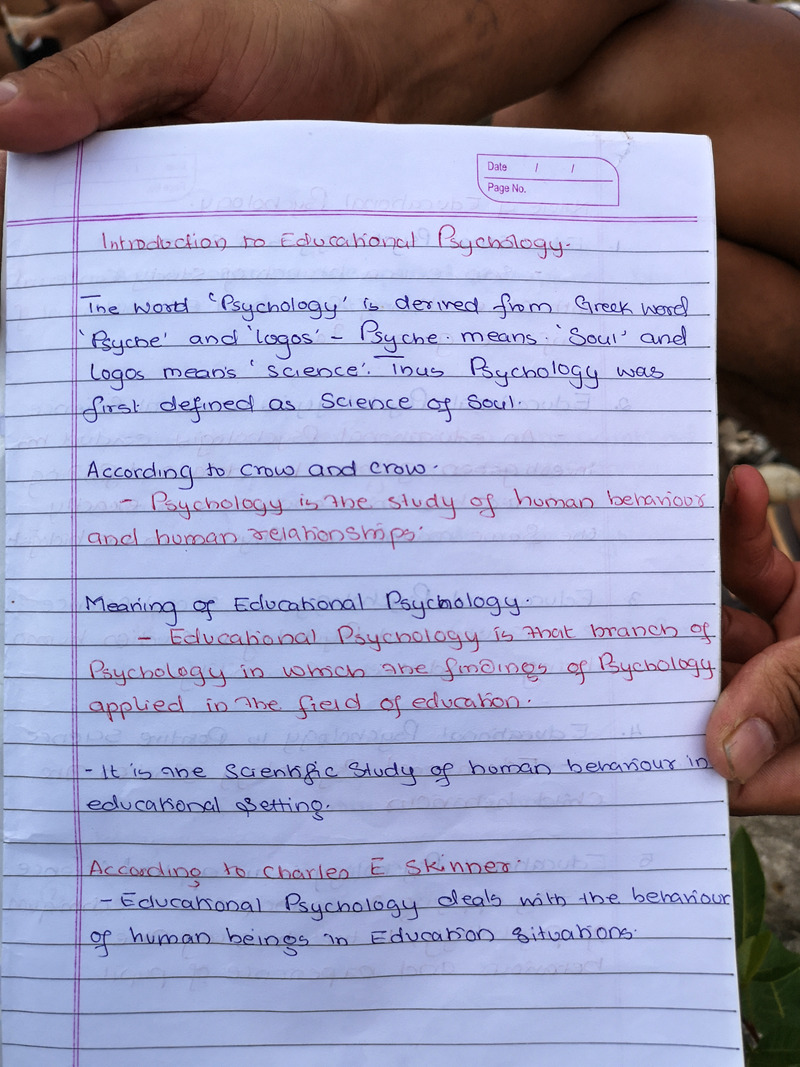 Date / /
Page No.
Introduction to Educational Psychology.
The word 'Psychology' is derived from Greek word
'Psyche' and 'logos' - Psyche. means. 'Soul' and
logos means 'science'. Thus Psychology was
first defined as Science of Soul.
According to Crow and Crow.
- Psychology is the study of human behaviour
and human relationships.
Meaning of Educational Psychology.
- Educational Psychology is that branch of
Psychology in which the findings of Psychology
applied in the field of education.
- It is the Scientific Study of human behaviour in
educational setting.
According to Charles E Skinner.
- Educational Psychology deals with the behaviour
of human beings in Education situations.